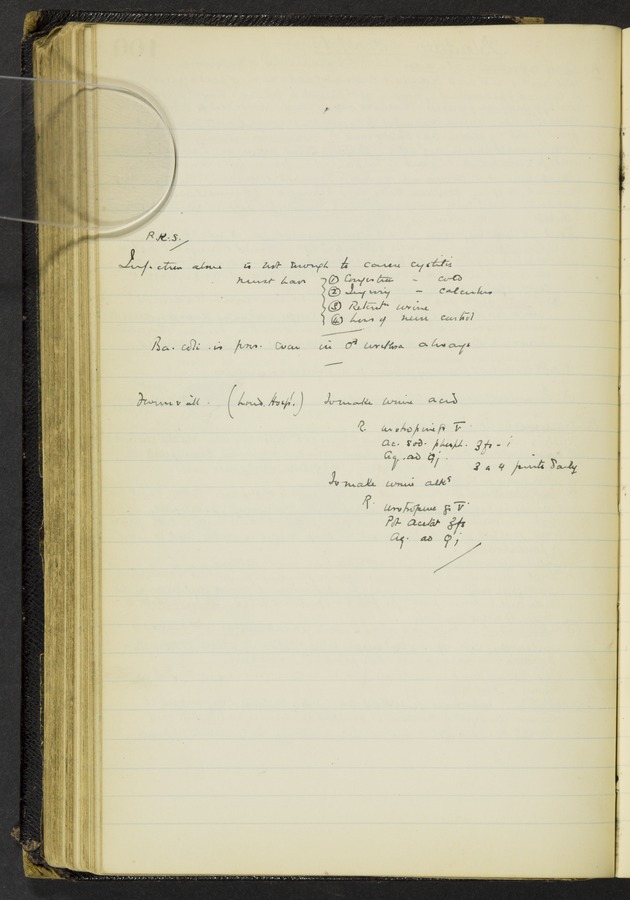 R.K.S.
Infection alone is not enough to cause cystitis
must have ① Congestion - cold
② Injury - calculus
③ Retent. urine
④ Loss of nerve control
Ba. coli is pres. even in ♂ urethra always
(Lond. Hosp.) To make urine acid
R. urotropine gr V
ac. sod. phosph. ʒfs - i
aq. ad ℥j
3 a 4 pints daily
To make urine alk
R. urotropine gr V
Pot acetat ʒfs
aq. ad ℥j